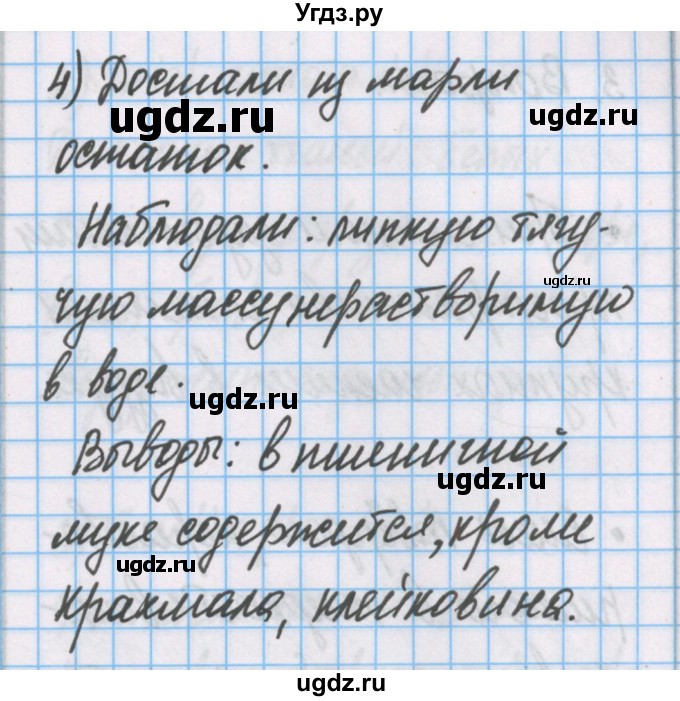 Угдз.ру
4) Достали из марли
ugdz.ru
остаток.
Наблюдали: липкую тягу-
ugdz.ru
чую массу нерастворимую
в воде.
ugdz.ru
Выводы: в пшеничной
ugdz.ru
муке содержится, кроме
ugdz.ru
крахмала, клейковина.
ugdz.ru